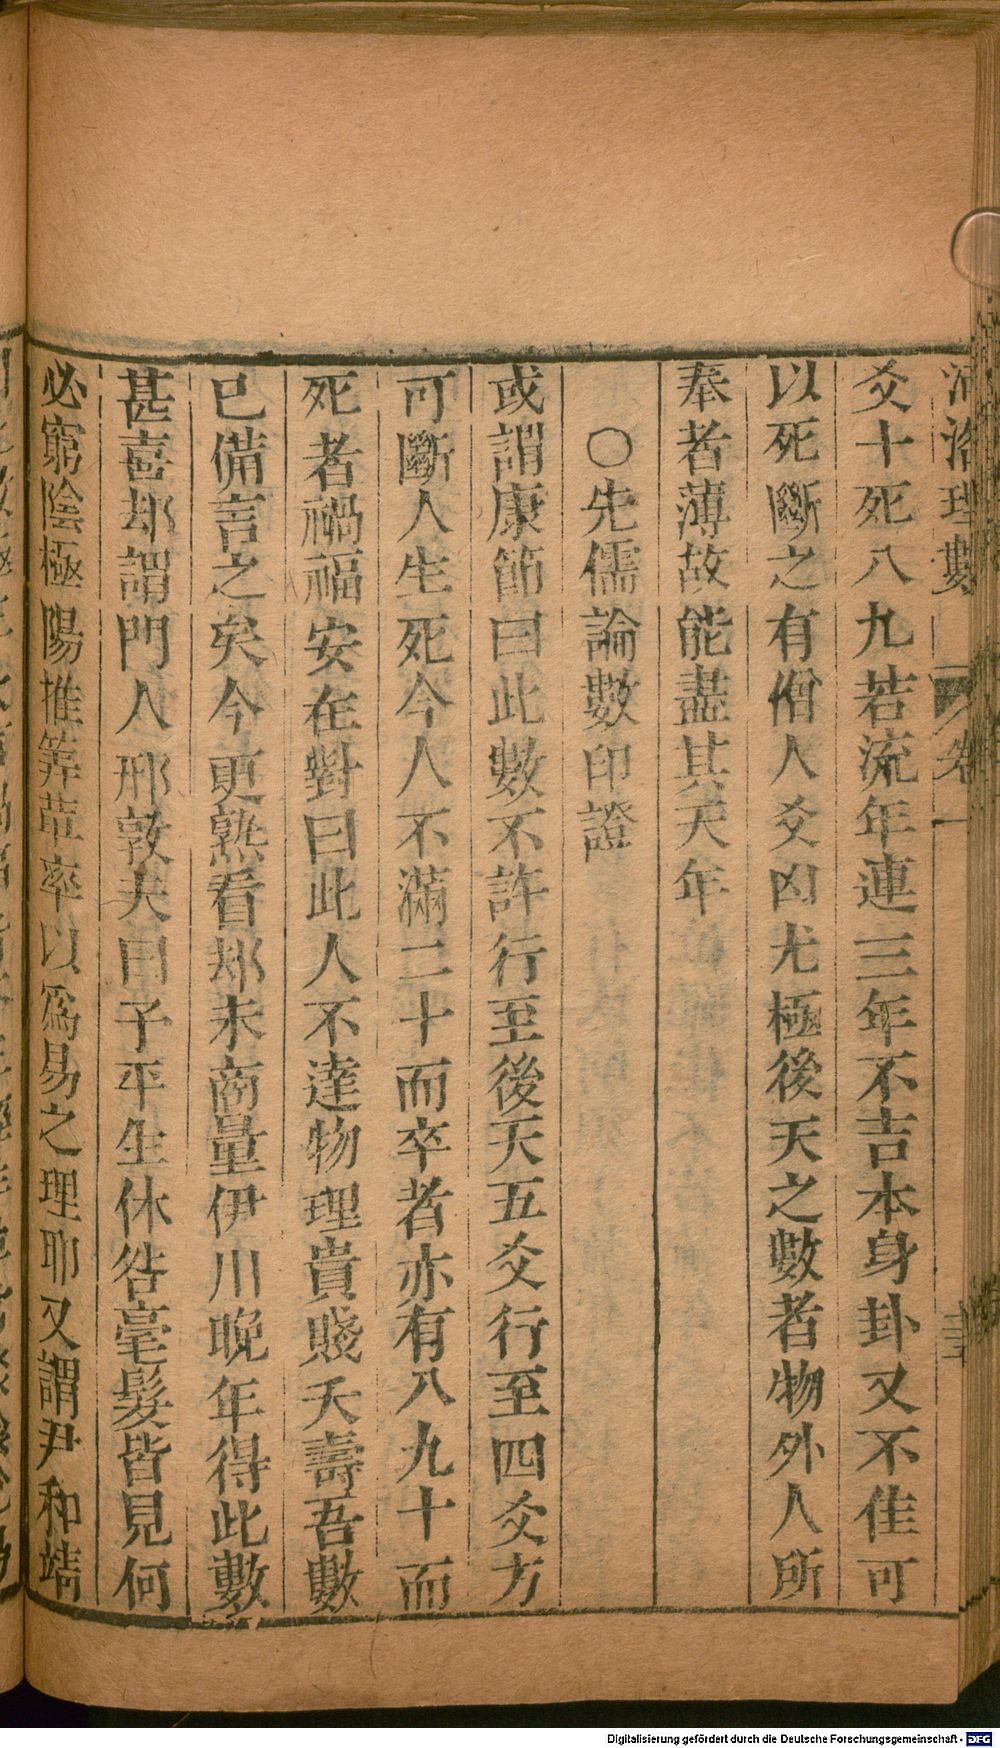 河洛理數 卷一
爻十死八九若流年連三年不吉本身卦又不佳可
以死斷之有僧人爻凶尤極後天之數者物外人所
奉者薄故能盡其天年
〇先儒論數印證
或謂康節曰此數不許行至後天五爻行至四爻方
可斷人生死今人不滿二十而卒者亦有八九十而
死者禍福安在對曰此人不達物理貴賤夭壽吾數
已備言之矣今更熟看却未商量伊川晚年得此數
甚喜却謂門人邢敦夫曰予平生休咎毫髮皆見何
必窮陰極陽推筭葢率以爲易之理耶又謂尹和靖
Digitalisierung gefördert durch die Deutsche Forschungsgemeinschaft - DFG